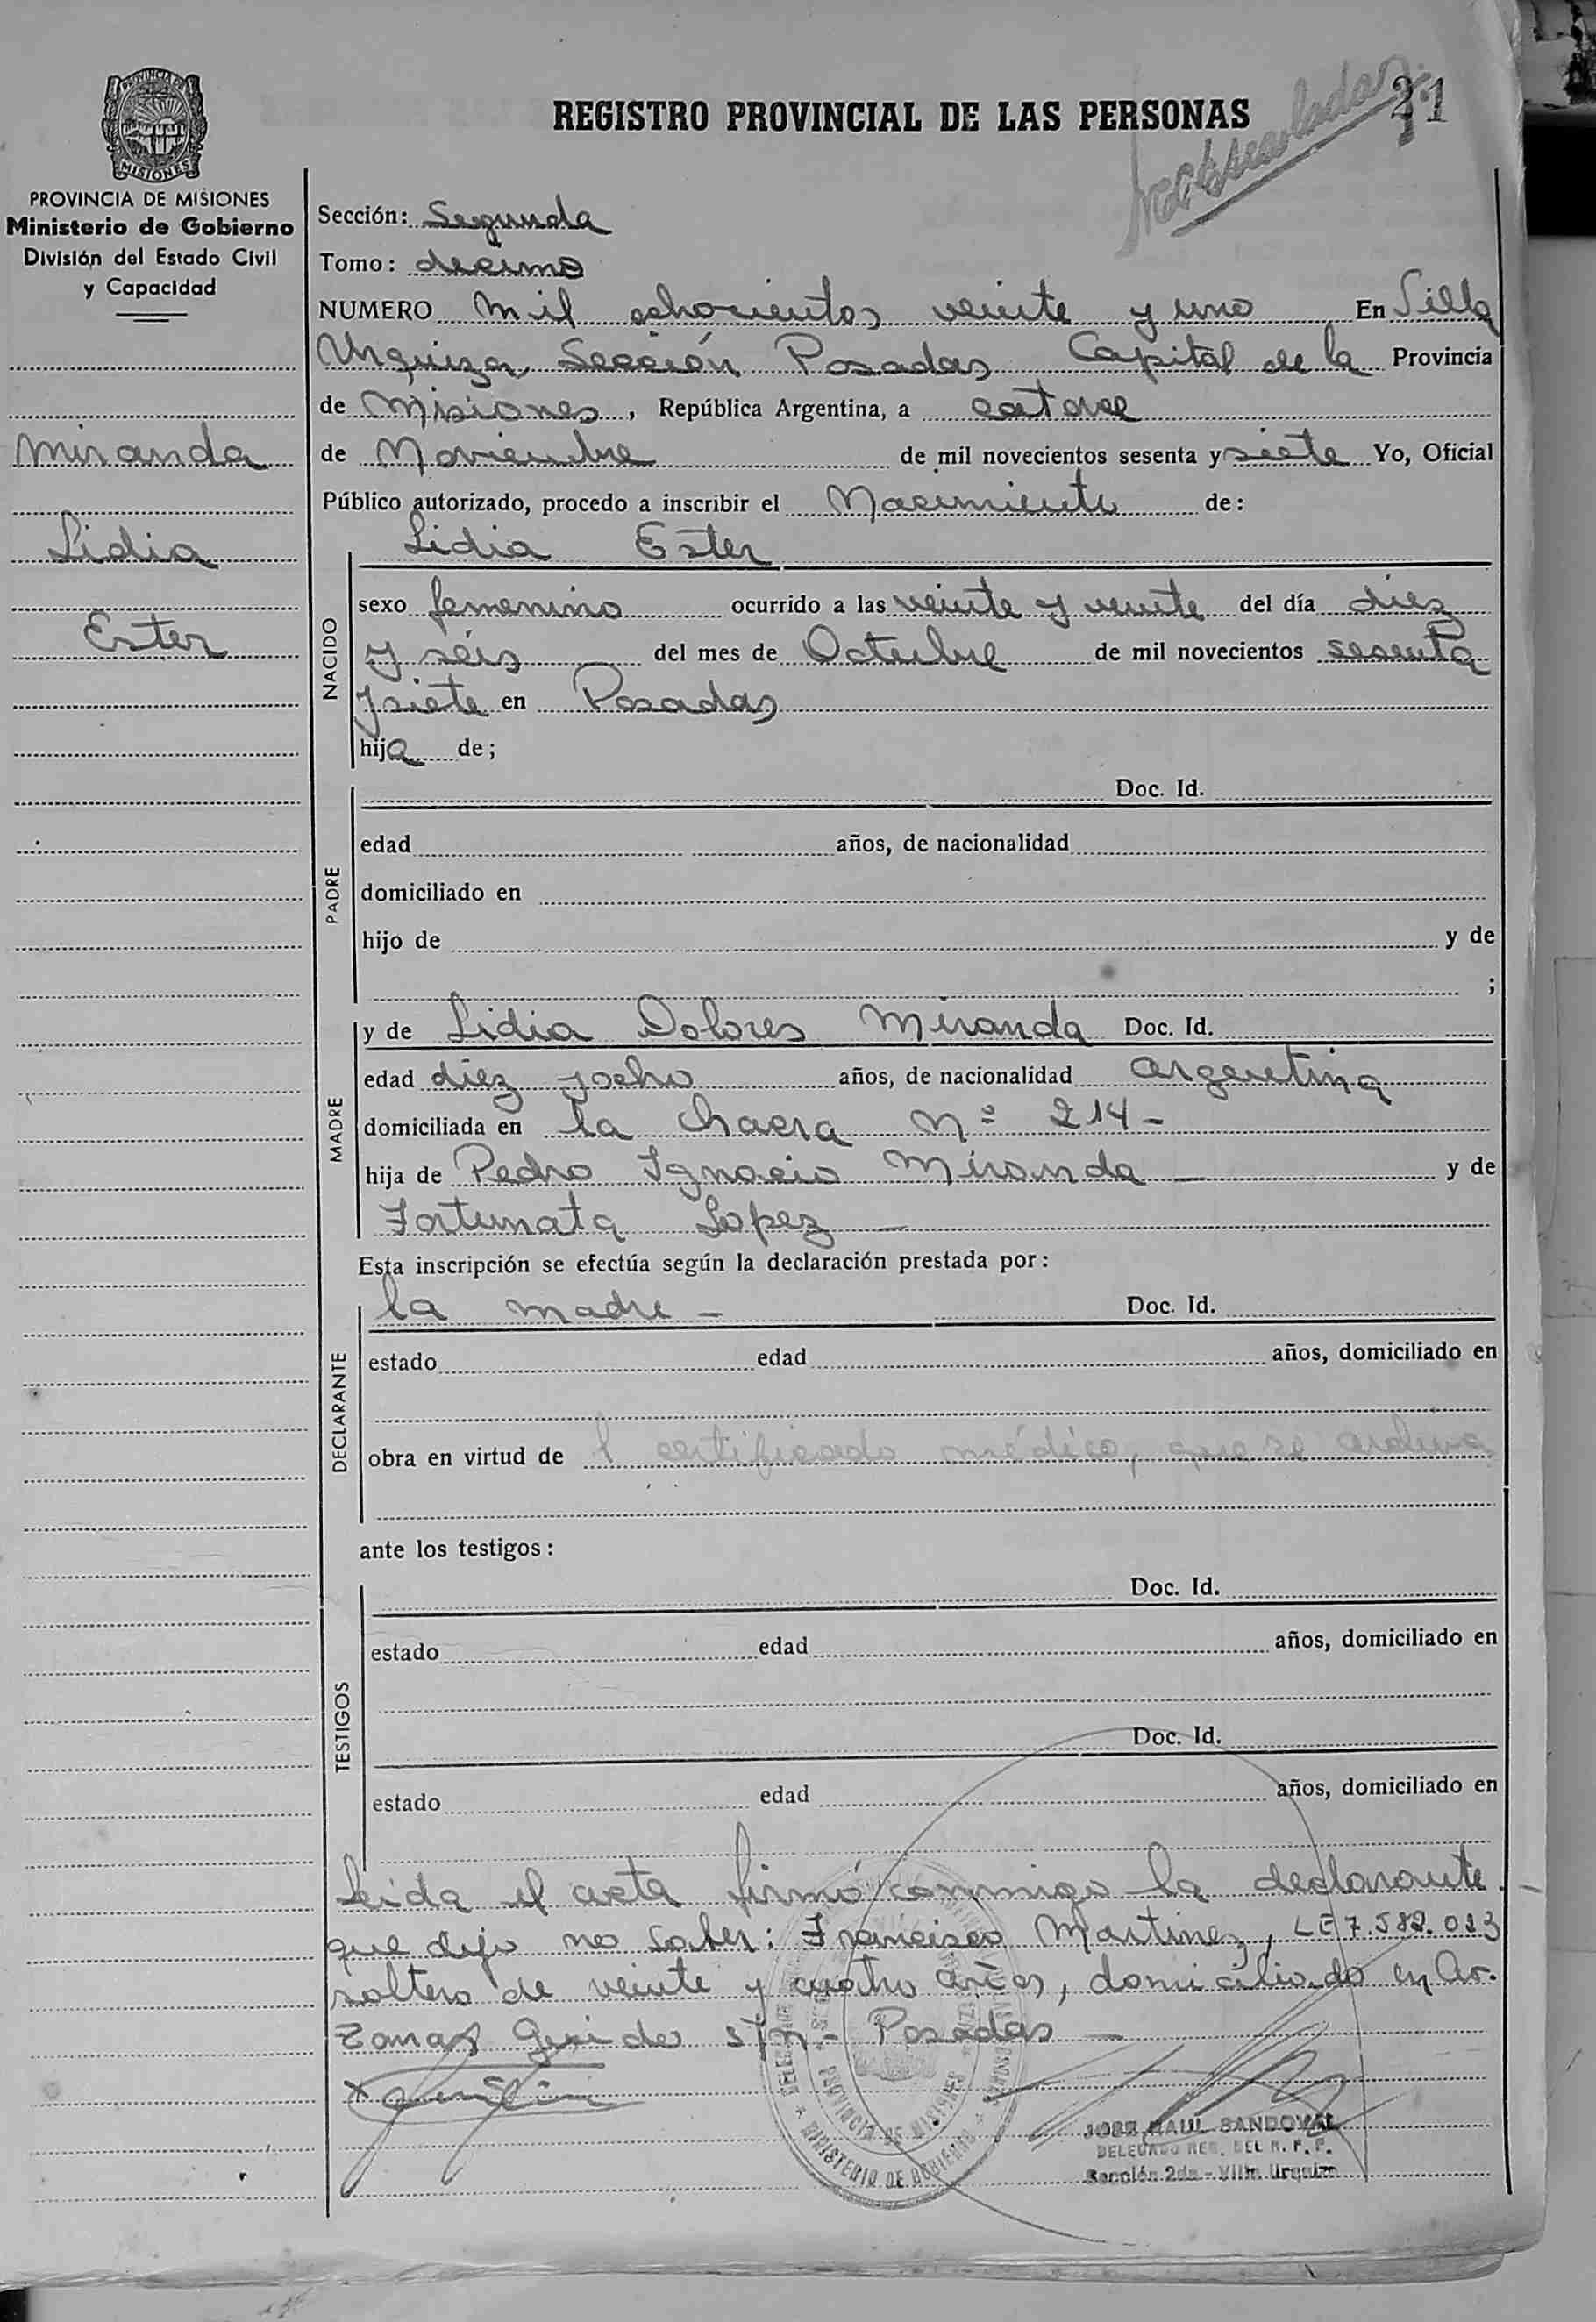 REGISTRO PROVINCIAL DE LAS PERSONAS
21
PROVINCIA DE MISIONES
PROVINCIA DE MISIONES
Ministerio de Gobierno
División del Estado Civil
y Capacidad
Miranda
Lidia
Ester
Sección: Segunda
Tomo: decimo
NUMERO mil ochocientos veinte y uno En Villa
Urquiza, Sección Posadas Capital de la Provincia
de Misiones, República Argentina, a catorce
de Noviembre de mil novecientos sesenta y siete Yo, Oficial
Público autorizado, procedo a inscribir el Nacimiento de:
Lidia Ester
NACIDO
sexo femenino ocurrido a las veinte y veinte del día diez
y séis del mes de Octubre de mil novecientos sesenta
y siete en Posadas
hija de;
PADRE
Doc. Id.
edad años, de nacionalidad
domiciliado en
hijo de y de
;
MADRE
y de Lidia Dolores Miranda Doc. Id.
edad diez y ocho años, de nacionalidad argentina
domiciliada en la Chacra Nº 214-
hija de Pedro Ignacio Miranda — y de
Fortunata Lopez —
Esta inscripción se efectúa según la declaración prestada por:
DECLARANTE
la madre - Doc. Id.
estado edad años, domiciliado en
obra en virtud de 1 certificado médico, que se archiva
ante los testigos:
TESTIGOS
Doc. Id.
estado edad años, domiciliado en
Doc. Id.
estado edad años, domiciliado en
Leida el acta firmó conmigo la declarante -
que dijo no saber: Francisco Martinez, LE 7.582.023
soltero de veinte y cuatro años, domiciliado en Av.
s/n.- Posadas —
MINISTERIO DE GOBIERNO
PROVINCIA DE MISIONES
JOSE RAUL SANDOVAL
DELEGADO REG. DEL R. P. P.
Sección 2da - Villa Urquiza